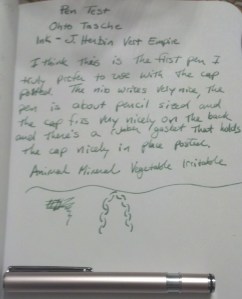 Pen Test
Ohto Tasche
Ink - J. Herbin Vert Empire
I think this is the first pen I
truly prefer to use with the cap
posted. The nib writes very nice, the
pen is about pencil sized and
the cap fits very nicely on the back
and there's a rubber gasket that holds
the cap nicely in place posted.
Animal Mineral Vegetable Irritable